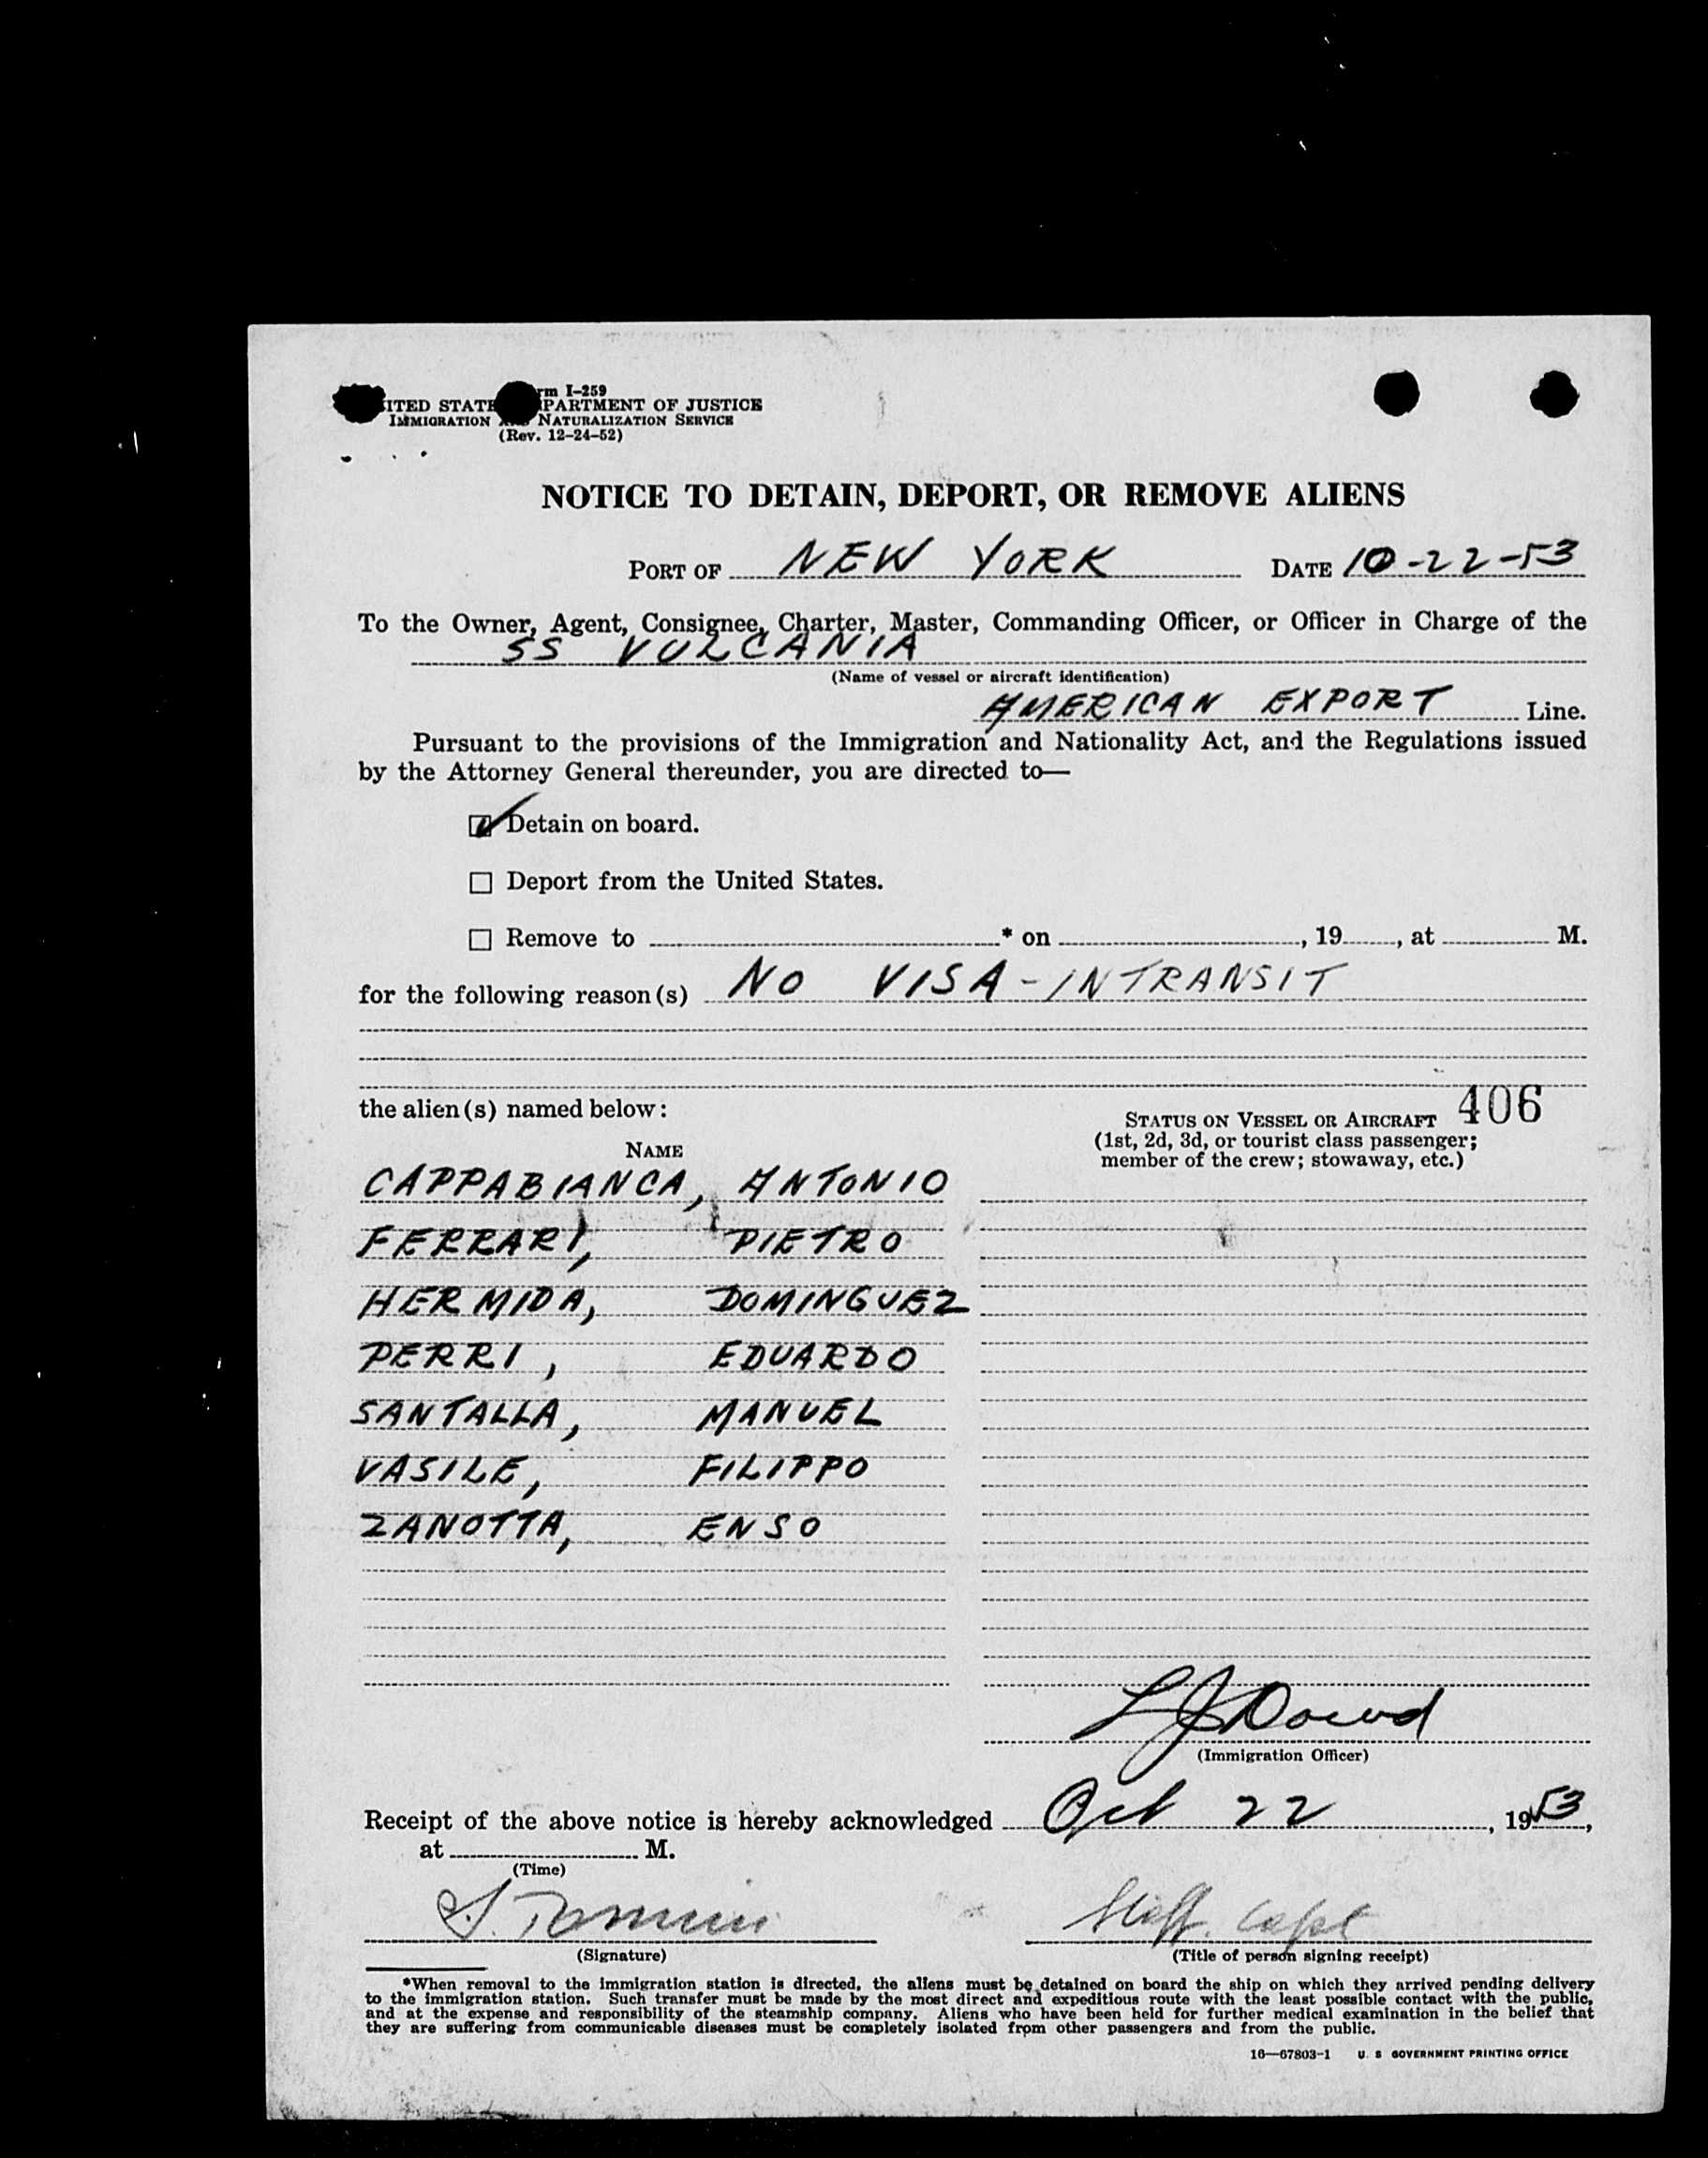 rm I-259
ITED STATE PARTMENT OF JUSTICE
IMMIGRATION NATURALIZATION SERVICE
(Rev. 12-24-52)
NOTICE TO DETAIN, DEPORT, OR REMOVE ALIENS
PORT OF NEW YORK DATE 10-22-53
To the Owner, Agent, Consignee, Charter, Master, Commanding Officer, or Officer in Charge of the
SS VULCANIA
(Name of vessel or aircraft identification)
AMERICAN EXPORT Line.
Pursuant to the provisions of the Immigration and Nationality Act, and the Regulations issued
by the Attorney General thereunder, you are directed to—
Detain on board.
Deport from the United States.
Remove to * on , 19 , at M.
for the following reason(s) NO VISA-INTRANSIT
406
the alien(s) named below:
STATUS ON VESSEL OR AIRCRAFT
(1st, 2d, 3d, or tourist class passenger;
member of the crew; stowaway, etc.)
NAME
CAPPABIANCA, ANTONIO
FERRARI, PIETRO
HERMIDA, DOMINGUEZ
PERRI, EDUARDO
SANTALLA, MANUEL
VASILE, FILIPPO
ZANOTTA, ENSO
L J Dowd
(Immigration Officer)
Receipt of the above notice is hereby acknowledged Oct 22, 1953,
at M.
(Time)
Staff. Capt
(Signature) (Title of person signing receipt)
*When removal to the immigration station is directed, the aliens must be detained on board the ship on which they arrived pending delivery
to the immigration station. Such transfer must be made by the most direct and expeditious route with the least possible contact with the public,
and at the expense and responsibility of the steamship company. Aliens who have been held for further medical examination in the belief that
they are suffering from communicable diseases must be completely isolated from other passengers and from the public.
16—67803-1 U. S GOVERNMENT PRINTING OFFICE